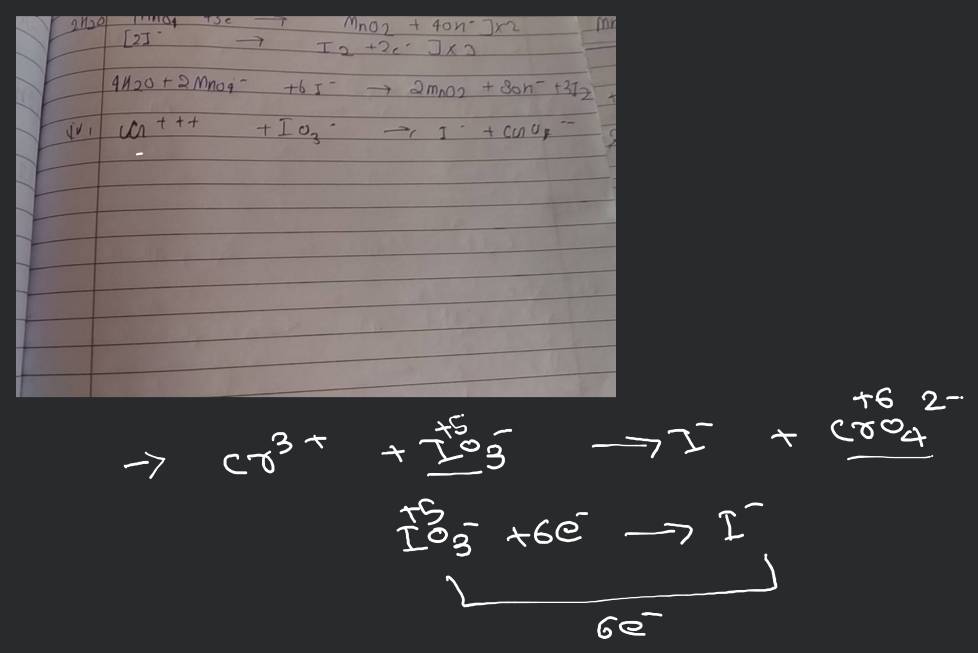 2H2O MnO4 +3e → MnO2 + 4OH- ]×2
[2I- → I2 +2e- ]×3
4H2O + 2MnO4- +6I- → 2MnO2 + 8OH- +3I2
iv. Cr+++ + IO3- → I- + CrO4--
→ Cr3+ + +5 IO3- → I- + +6 CrO4 2-
+5 IO3- +6e- → I-
6e-